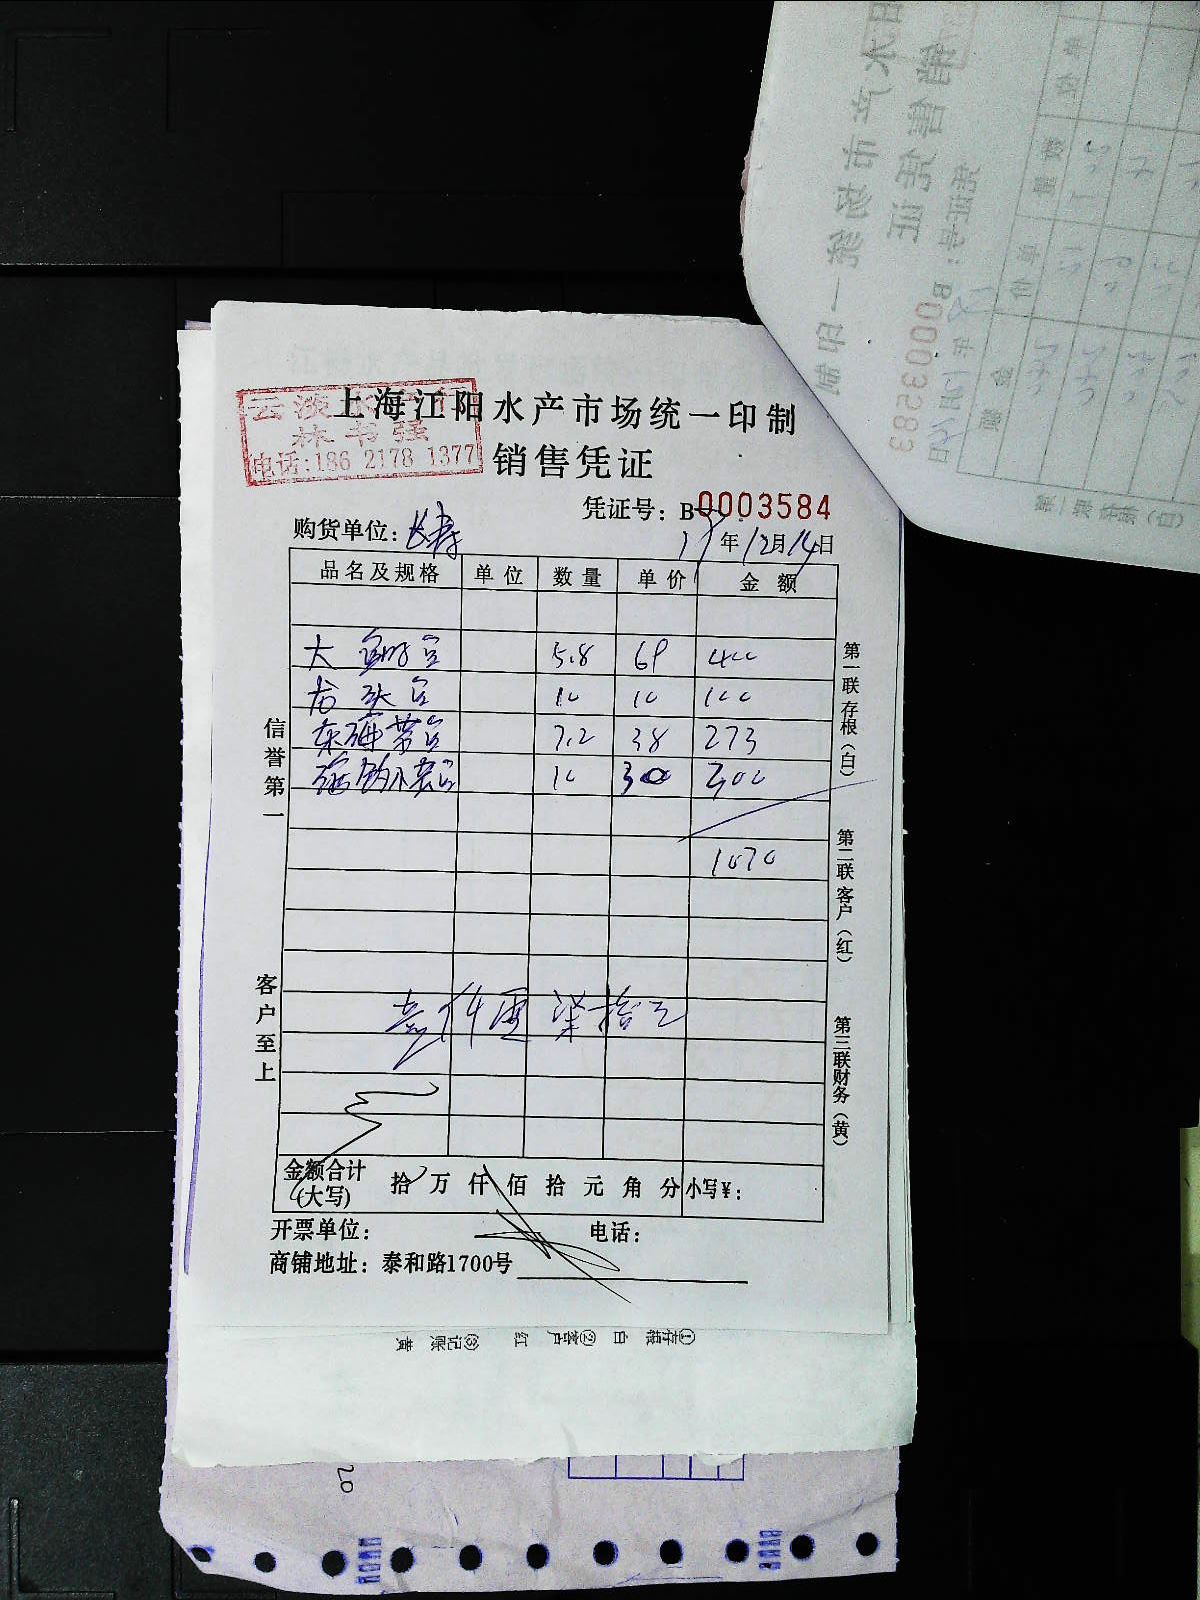 云淡水产行
林书强
电话:186 2178 1377
上海江阳水产市场统一印制
销售凭证
凭证号: B 0003584
购货单位: 长寿
17年12月14日
品名及规格 单位 数量 单价 金额
大 鱼 5.8 69 400
龙头鱼 10 10 100
东海带鱼 7.2 38 273
10 30 300
1070
壹仟零柒拾元
金额合计(大写) 拾 万 仟 佰 拾 元 角 分 小写¥:
开票单位: 电话:
商铺地址: 泰和路1700号
信誉第一
客户至上
第一联存根(白)
第二联客户(红)
第三联财务(黄)
①存根 白 ②客户 红 ③记账 黄
20
B0003583